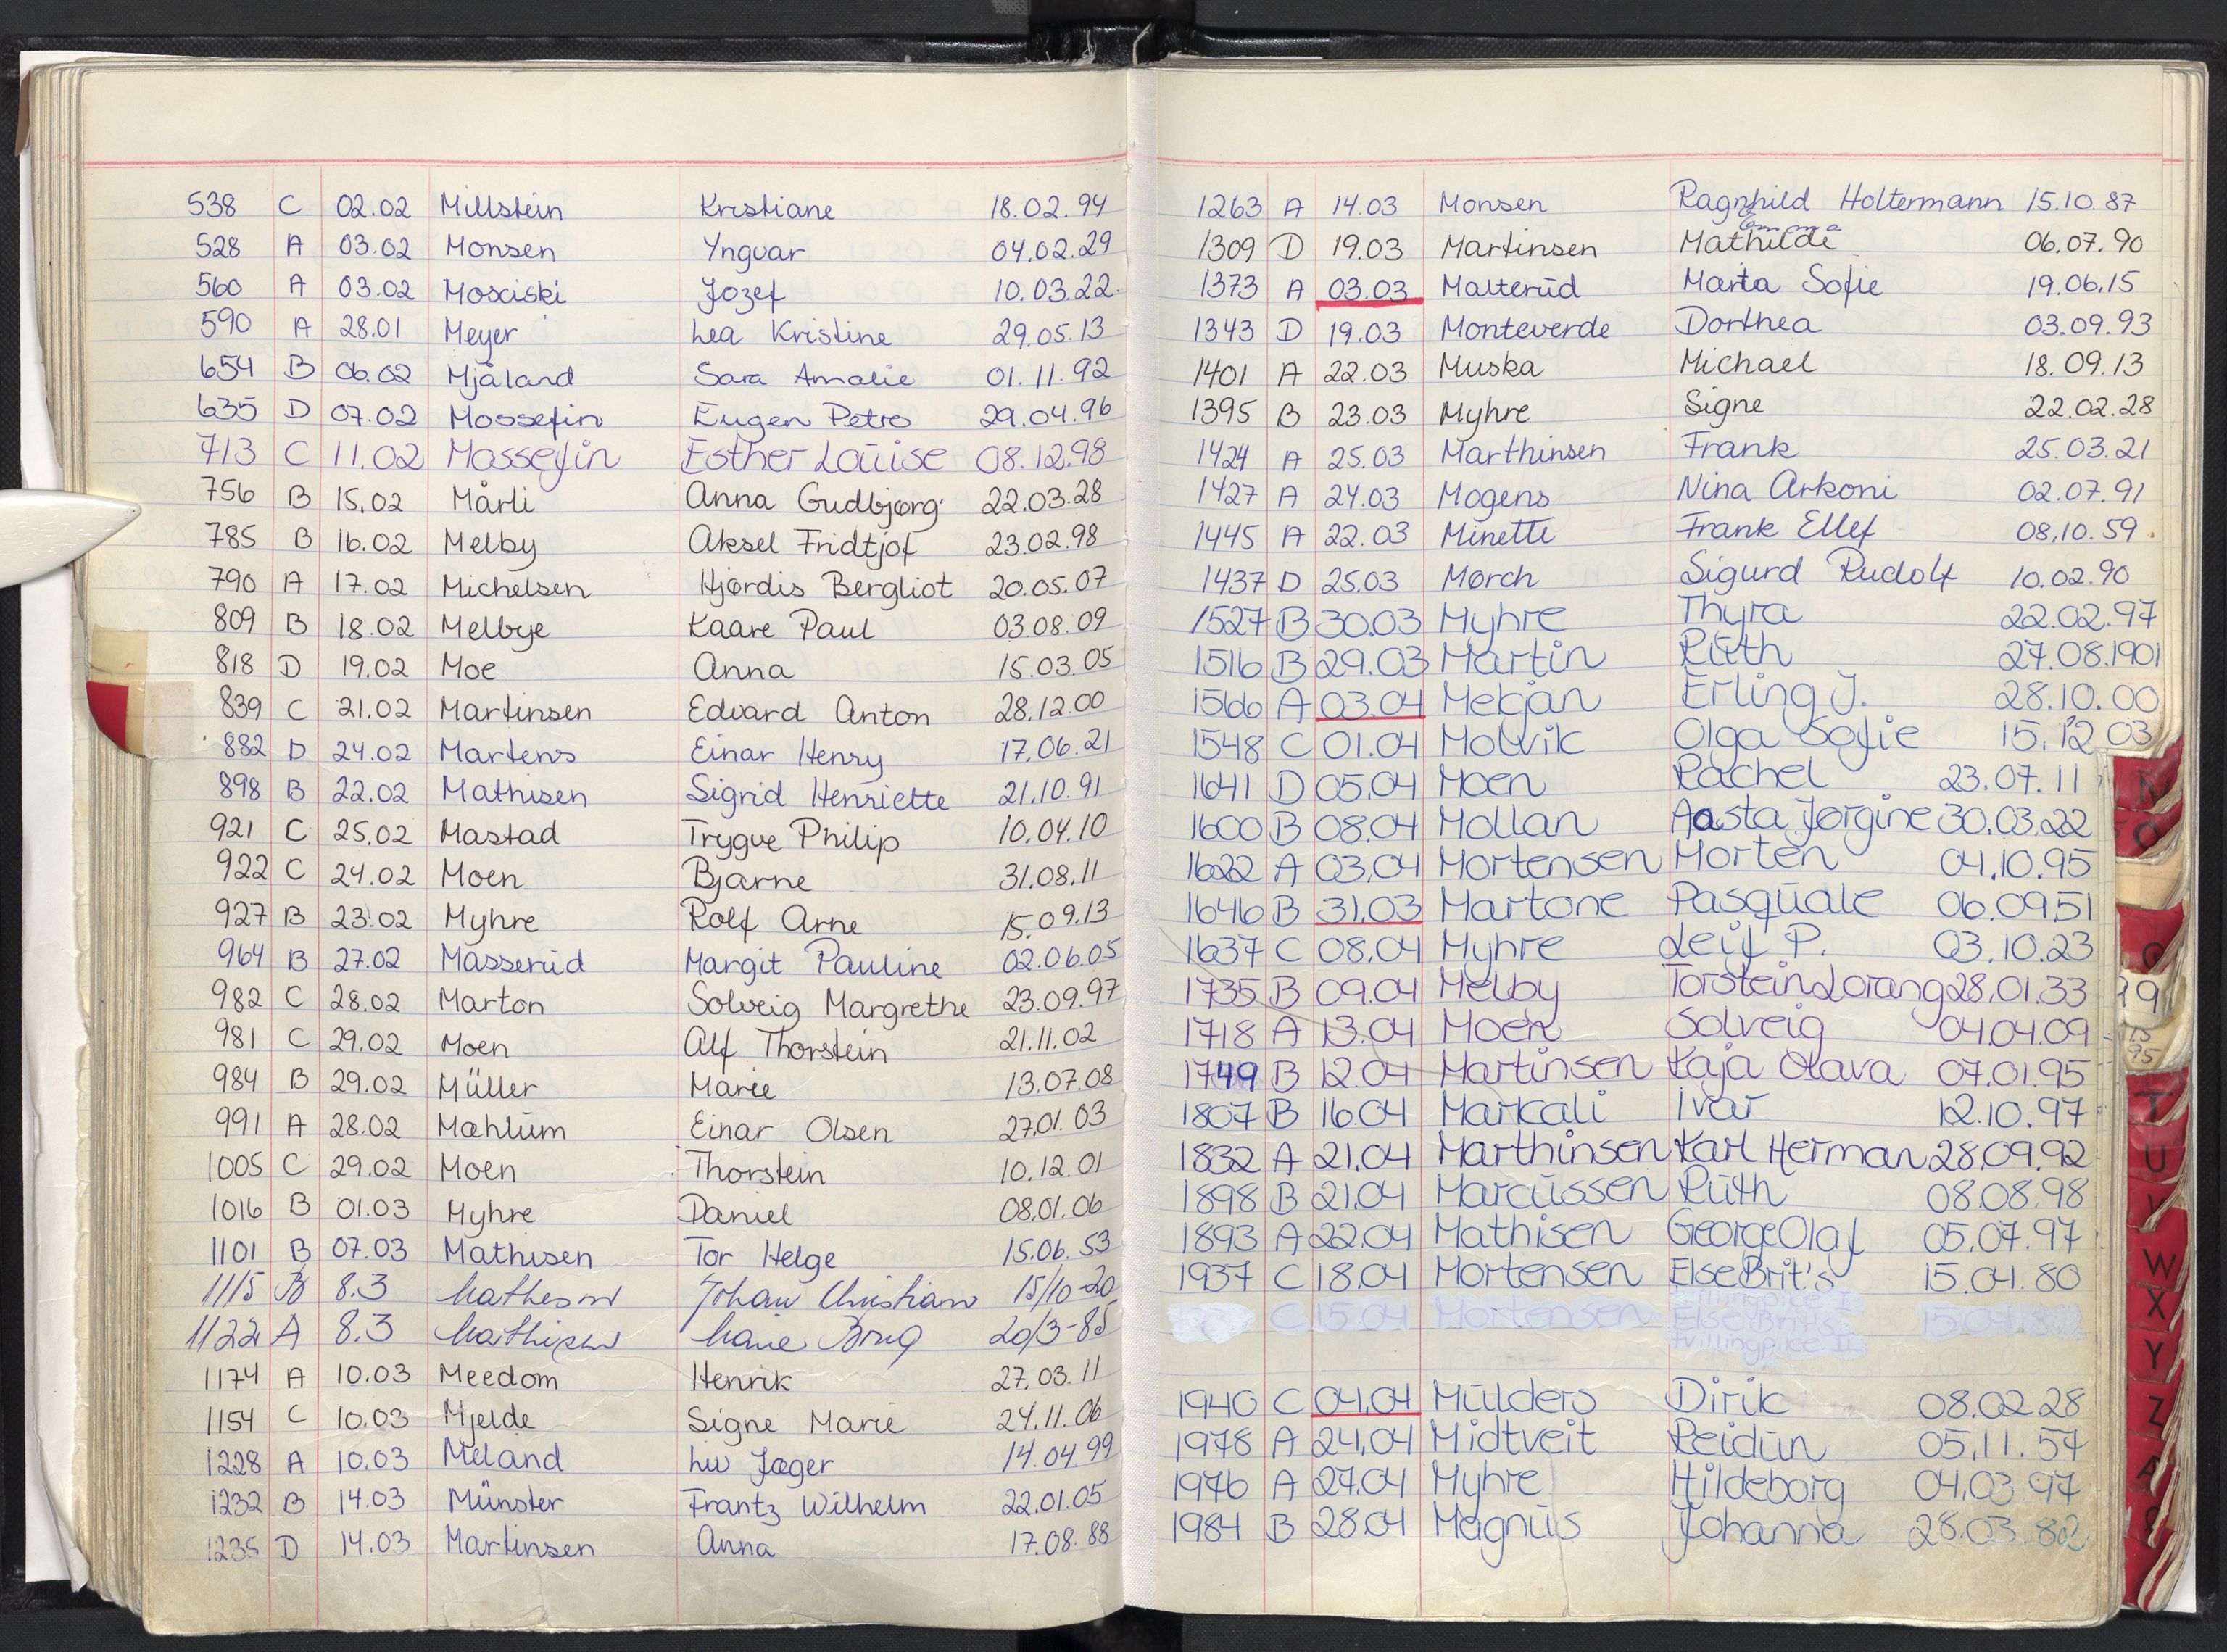 538 C 02.02 Millstein Kristiane 18.02.94
528 A 03.02 Monsen Yngvar 04.02.29
560 A 03.02 Mosciski Jozef 10.03.22
590 A 28.01 Meyer Lea Kristine 29.05.13
654 B 06.02 Mjåland Sara Amalie 01.11.92
635 D 07.02 Mossefin Eugen Petro 29.04.96
713 C 11.02 Mossefin Esther Louise 08.12.98
756 B 15.02 Mårli Anna Gudbjørg 22.03.28
785 B 16.02 Melby Aksel Fridtjof 23.02.98
790 A 17.02 Michelsen Hjørdis Bergliot 20.05.07
809 B 18.02 Melbye Kaare Paul 03.08.09
818 D 19.02 Moe Anna 15.03.05
839 C 21.02 Martinsen Edvard Anton 28.12.00
882 D 24.02 Martens Einar Henry 17.06.21
898 B 22.02 Mathisen Sigrid Henriette 21.10.91
921 C 25.02 Mastad Trygve Philip 10.04.10
922 C 24.02 Moen Bjarne 31.08.11
927 B 23.02 Myhre Rolf Arne 15.09.13
964 B 27.02 Masserud Margit Pauline 02.06.05
982 C 28.02 Marton Solveig Margrethe 23.09.97
981 C 29.02 Moen Alf Thorstein 21.11.02
984 B 29.02 Müller Marie 13.07.08
991 A 28.02 Mæhlum Einar Olsen 27.01.03
1005 C 29.02 Moen Thorstein 10.12.01
1016 B 01.03 Myhre Daniel 08.01.06
1101 B 07.03 Mathisen Tor Helge 15.06.53
1115 B 8.3 Matheson Johan Christian 15/10-20
1122 A 8.3 Mathisen Marie Brug 20/3-85
1174 A 10.03 Meedom Henrik 27.03.11
1154 C 10.03 Mjelde Signe Marie 24.11.06
1228 A 10.03 Meland Liv Jæger 14.04.99
1232 B 14.03 Münster Frantz Wilhelm 22.01.05
1235 D 14.03 Martinsen Anna 17.08.88
1263 A 14.03 Monsen Ragnhild Holtermann 15.10.87
Emma
1309 D 19.03 Martinsen Mathilde 06.07.90
1373 A 03.03 Malterud Marta Sofie 19.06.15
1343 D 19.03 Monteverde Dorthea 03.09.93
1401 A 22.03 Muska Michael 18.09.13
1395 B 23.03 Myhre Signe 22.02.28
1424 A 25.03 Marthinsen Frank 25.03.21
1427 A 24.03 Mogens Nina Arkoni 02.07.91
1445 A 22.03 Minetti Frank Ellef 08.10.59
1437 D 25.03 Mørch Sigurd Rudolf 10.02.90
1527 B 30.03 Myhre Thyra 22.02.97
1516 B 29.03 Martin Ruth 27.08.1901
1566 A 03.04 Mekjan Erling J. 28.10.00
1548 C 01.04 Molvik Olga Sofie 15.12.03
1641 D 05.04 Moen Rachel 23.07.11
1600 B 08.04 Mollan Aasta Jørgine 30.03.22
1622 A 03.04 Mortensen Morten 04.10.95
1646 B 31.03 Martone Pasquale 06.09.51
1637 C 08.04 Myhre Leif P. 03.10.23
1735 B 09.04 Melby Torstein Lorang 28.01.33
1718 A 13.04 Moen Solveig 04.04.09
1749 B 12.04 Martinsen Kaja Olava 07.01.95
1807 B 16.04 Markali Ivar 12.10.97
1832 A 21.04 Marthinsen Karl Herman 28.09.92
1898 B 21.04 Marcussen Ruth 08.08.98
1893 A 22.04 Mathisen George Olaf 05.07.97
1937 C 18.04 Mortensen Else Brit's 15.04.80
C 15.04 Mortensen Else Brits 15.04.80
tvillingpike II
1940 C 04.04 Mülders Dirik 08.02.28
1978 A 24.04 Midtveit Reidun 05.11.57
1976 A 27.04 Myhre Hildeborg 04.03.97
1984 B 28.04 Magnus Johanna 28.03.82
T
U
V
W
X
Y
Z